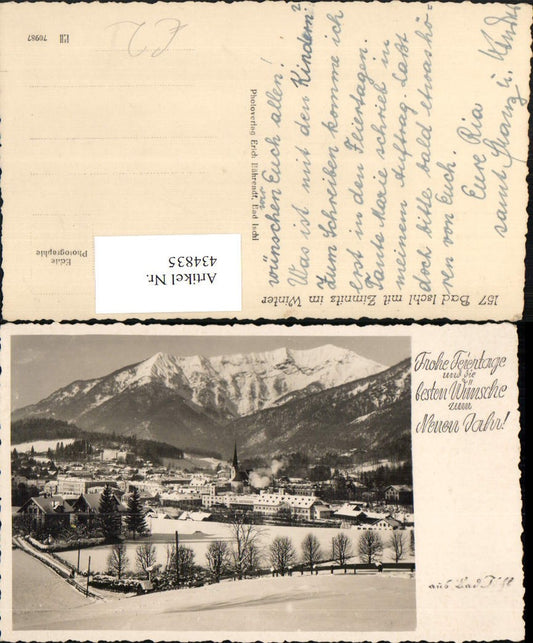 wünschen Euch allen!
Was ist mit den Kindern?
Zum Schreiben komme ich
erst in den Feiertagen.
Tante Marie schrieb in
meinem Auftrag. Laßt
doch bitte bald etwas hö-
ren von Euch.
Eure Ria
samt Franz u. Kinder
Photoverlag Erich Bährendt, Bad Ischl
157 Bad Ischl mit Zimnitz im Winter
Echte
Photographie
70987
Artikel Nr.
434835
Frohe Feiertage
und die
besten Wünsche
zum
Neuen Jahr!
aus Bad Ischl